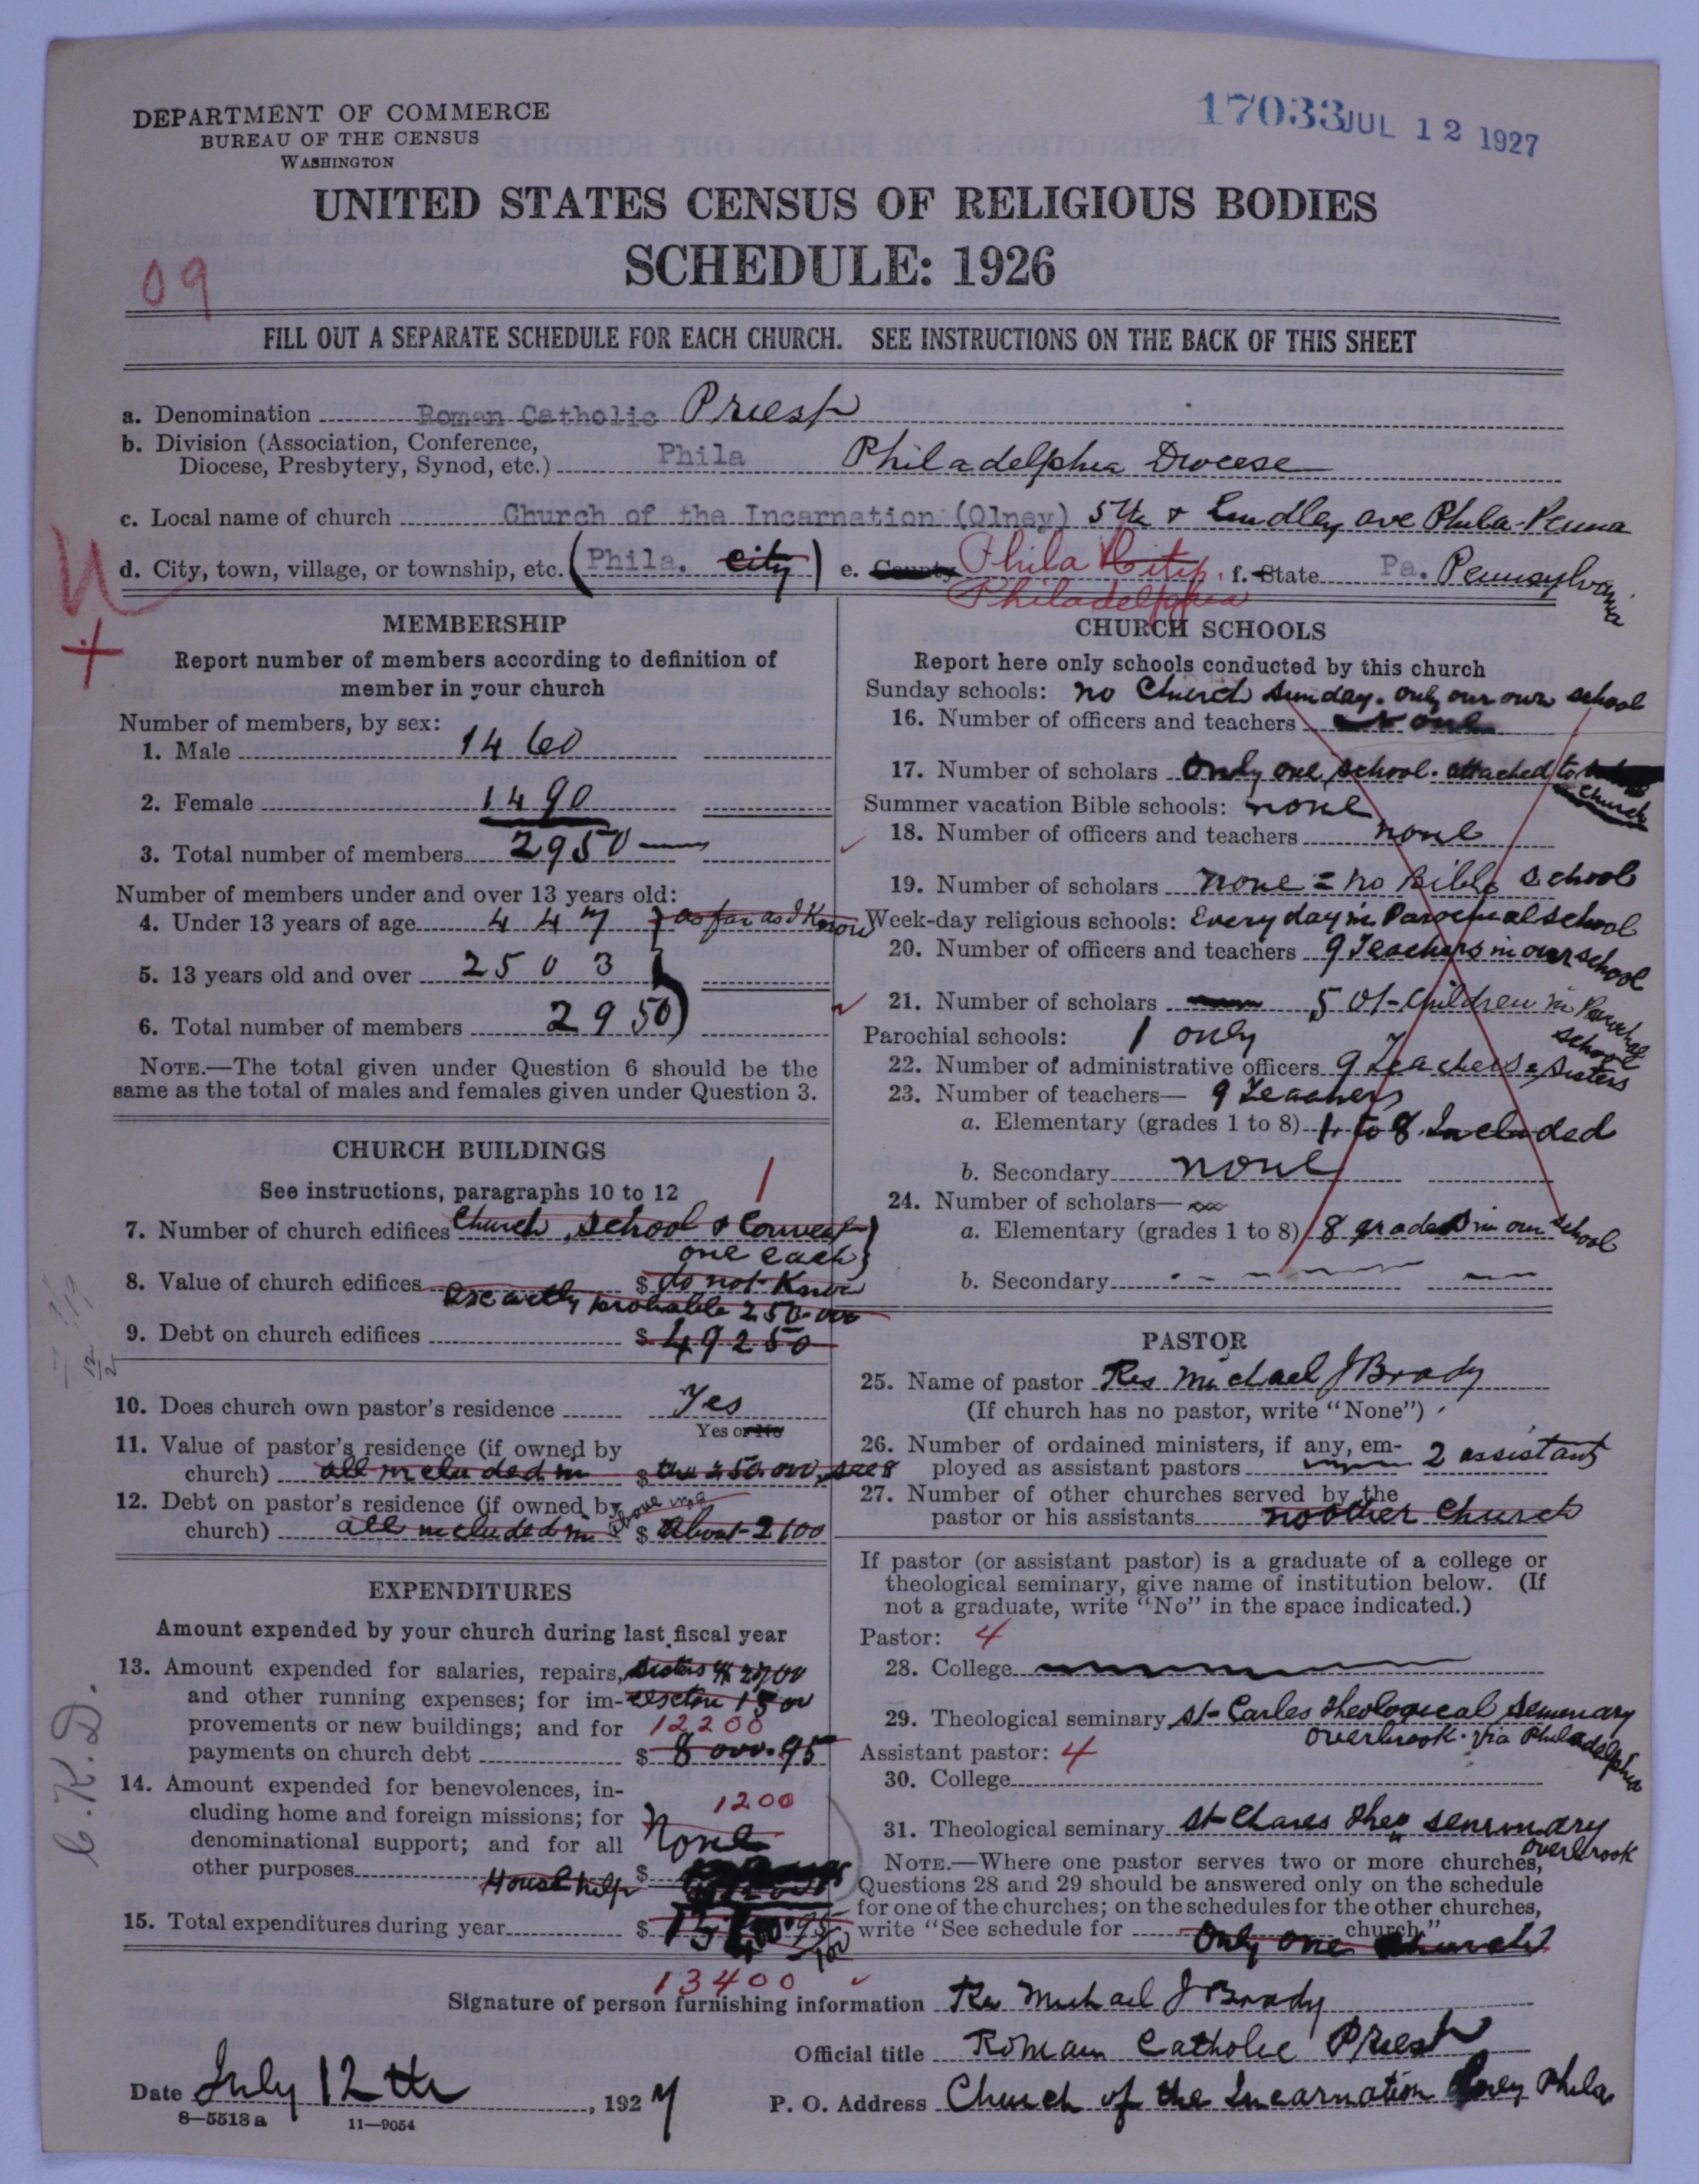 DEPARTMENT OF COMMERCE
BUREAU OF THE CENSUS
WASHINGTON
17033 JUL 12 1927
UNITED STATES CENSUS OF RELIGIOUS BODIES
SCHEDULE: 1926
09
FILL OUT A SEPARATE SCHEDULE FOR EACH CHURCH. SEE INSTRUCTIONS ON THE BACK OF THIS SHEET
a. Denomination Roman Catholic Priest
b. Division (Association, Conference, Diocese, Presbytery, Synod, etc.) Phila Philadelphia Diocese
c. Local name of church Church of the Incarnation (Olney) 5th & Lindley ave Phila-Penna
d. City, town, village, or township, etc. (Phila. city) e. County Phila City. f. State Pa. Pennsylvania
Philadelphia
MEMBERSHIP
Report number of members according to definition of
member in your church
Number of members, by sex:
1. Male 1460
2. Female 1490
3. Total number of members 2950
Number of members under and over 13 years old:
4. Under 13 years of age 447 } as far as I Know
5. 13 years old and over 2503
6. Total number of members 2950
NOTE.—The total given under Question 6 should be the
same as the total of males and females given under Question 3.
CHURCH BUILDINGS
See instructions, paragraphs 10 to 12
1
7. Number of church edifices Church, School & Convent
one each
8. Value of church edifices $ do not Know
Exactly probable 250.000
9. Debt on church edifices $ 49250
10. Does church own pastor's residence Yes
Yes or No
11. Value of pastor's residence (if owned by
church) all included in $ the 250.000, see 8
12. Debt on pastor's residence (if owned by
church) all included in above no 9 $ About 2100
EXPENDITURES
Amount expended by your church during last fiscal year
13. Amount expended for salaries, repairs, Sisters $ 2700
and other running expenses; for im- sexton 1500
provements or new buildings; and for 12200
payments on church debt $ 8000.95
14. Amount expended for benevolences, in-
cluding home and foreign missions; for 1200
denominational support; and for all None
other purposes House help $
15. Total expenditures during year $
13400
CHURCH SCHOOLS
Report here only schools conducted by this church
Sunday schools: no Church Sunday. only our own school
16. Number of officers and teachers
17. Number of scholars Only one school. attached to church
Summer vacation Bible schools: none
18. Number of officers and teachers none
19. Number of scholars none = no Bible School
Week-day religious schools: Every day in Parochial school
20. Number of officers and teachers 9 Teachers in our school
21. Number of scholars 501-Children in Parochial school
Parochial schools: 1 only
22. Number of administrative officers 9 Teachers, Sisters
23. Number of teachers— 9 Teachers
a. Elementary (grades 1 to 8) 1 to 8 Included
b. Secondary none
24. Number of scholars—
a. Elementary (grades 1 to 8) 8 grades in our school
b. Secondary
PASTOR
25. Name of pastor Rev Michael J Brady
(If church has no pastor, write "None")
26. Number of ordained ministers, if any, em-
ployed as assistant pastors 2 assistant
27. Number of other churches served by the
pastor or his assistants no other church
If pastor (or assistant pastor) is a graduate of a college or
theological seminary, give name of institution below. (If
not a graduate, write "No" in the space indicated.)
Pastor: 4
28. College
29. Theological seminary St-Carles Theological Seminary
Overbrook. via Philadelphia
Assistant pastor: 4
30. College
31. Theological seminary St-Chares Theo seminary
Overbrook
NOTE.—Where one pastor serves two or more churches,
Questions 28 and 29 should be answered only on the schedule
for one of the churches; on the schedules for the other churches,
write "See schedule for church"
Only one church
Signature of person furnishing information Rev Michael J Brady
Official title Roman Catholic Priest
Date July 12th, 1927 P. O. Address Church of the Incarnation Olney Phila
8—5518a 11—9054
C.K.D.